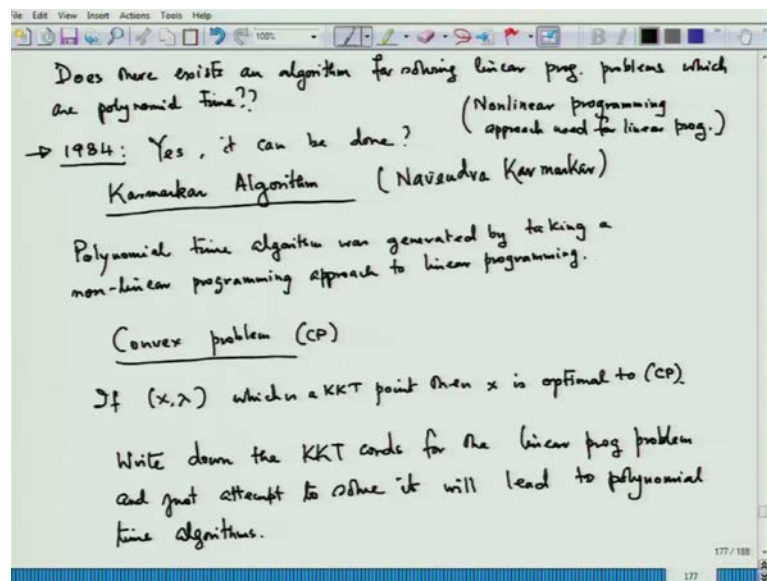 File Edit View Insert Actions Tools Help
100%
Does there exists an algorithm for solving linear prog. problems which
are polynomial time??
(Nonlinear programming
approach used for linear prog.)
→ 1984: Yes, it can be done?
Karmarkar Algorithm (Narendra Karmarkar)
Polynomial time algorithm was generated by taking a
non-linear programming approach to linear programming.
Convex problem (CP)
If (x,λ) which is a KKT point then x is optimal to (CP)
Write down the KKT conds for the linear prog problem
and just attempt to solve it will lead to polynomial
time algorithms.
177 / 188
177